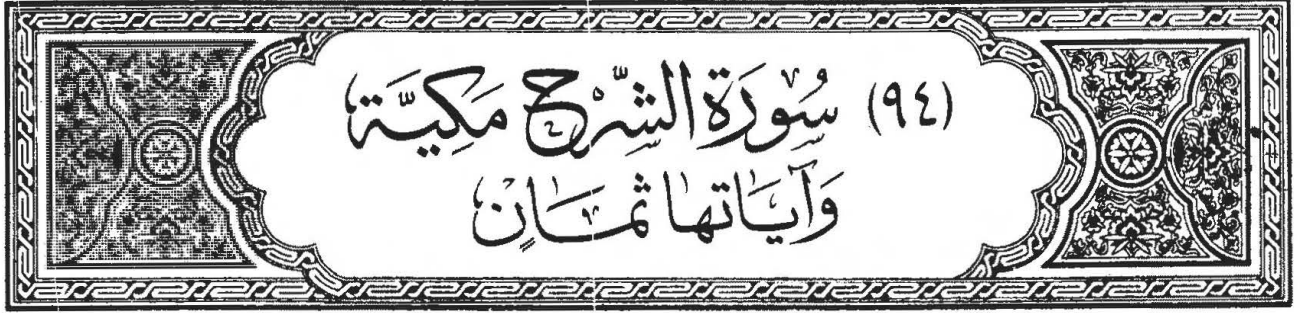 (٩٤) سُورَة الشَّرْح مَكيَّة
وَآيَاتها ثمَانٍ